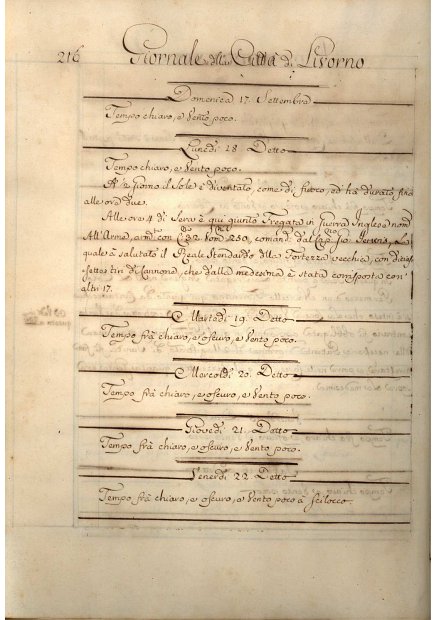 216 Giornale della Città di Livorno
Domenica 17. Settembre
Tempo chiaro, e Vento poco.
Lunedì 18. Detto
Tempo chiaro, e Vento poco.
giorno il Sole è diventato, come di fuoco, ed ha durato, fino
alle ore due.
Alle ore 4 di Sera è qui giunto Fregata in Guerra Inglese nom.
All'Arme, con 250, comand. dal Cap. Gio. Jervis, la
quale à salutato il Reale Stendardo della Fortezza vecchia, con dicias-
sette tiri di Cannone, che dalla medesima è stata corrisposta con
altri 17.
Martedì 19. Detto
Tempo frà chiaro, e oscuro, e Vento poco.
Mercoldì 20. Detto
Tempo frà chiaro, e oscuro, e Vento poco.
Giovedì 21. Detto
Tempo frà chiaro, e oscuro, e Vento poco.
Venerdì 22. Detto
Tempo frà chiaro, e oscuro, e Vento poco à Scilocco.